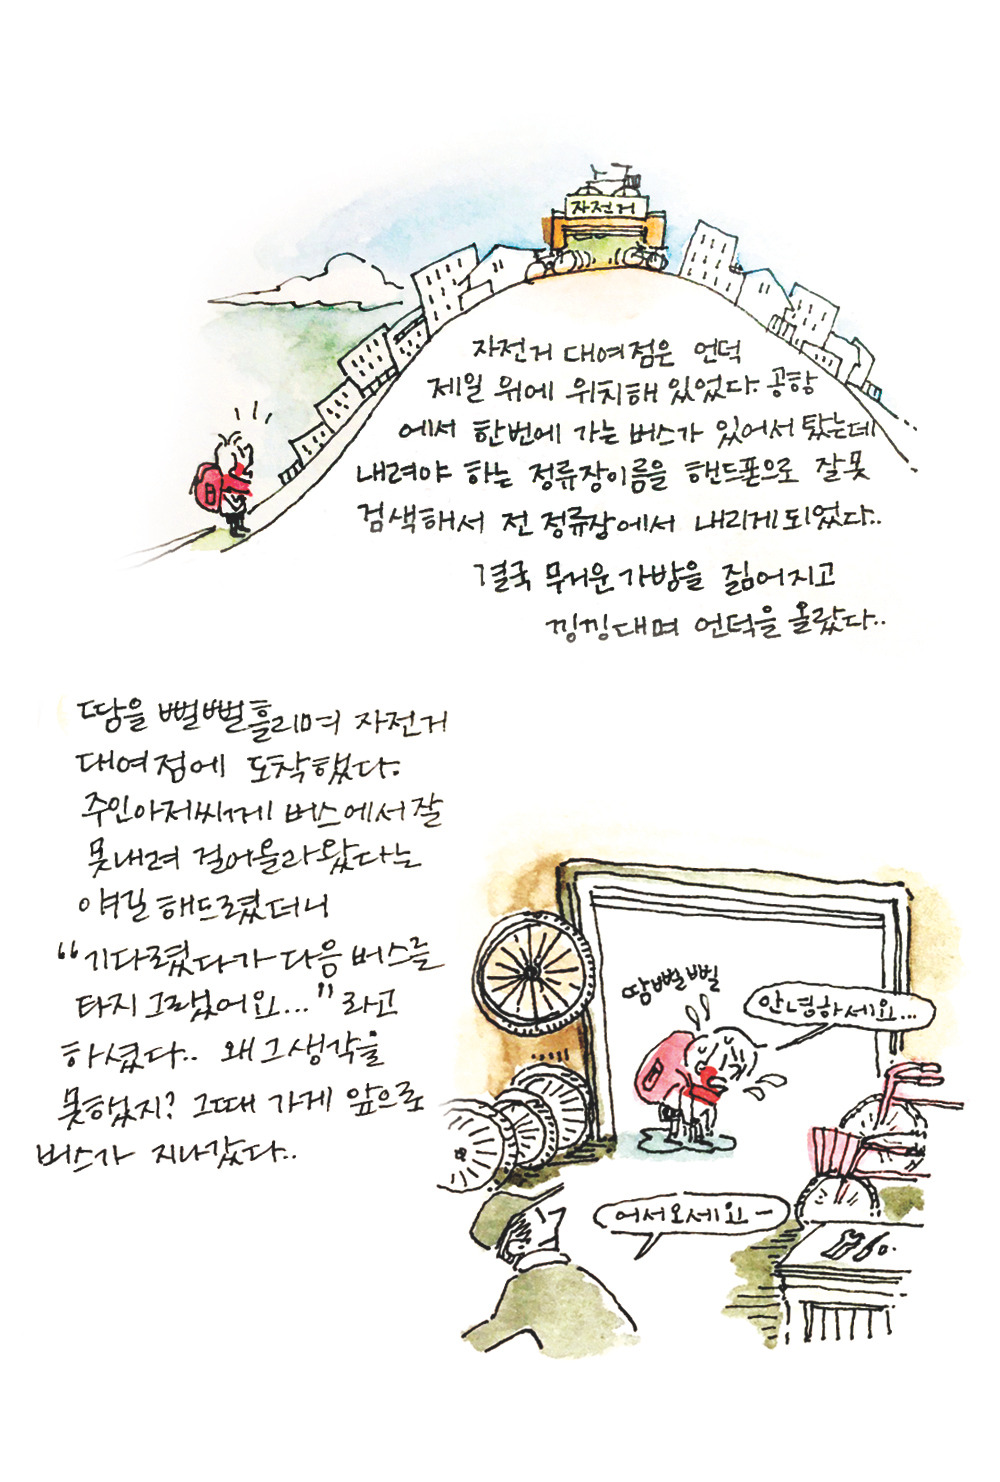 자전거
자전거 대여점은 언덕
제일 위에 위치해 있었다. 공항
에서 한번에 가는 버스가 있어서 탔는데
내려야 하는 정류장이름을 핸드폰으로 잘못
검색해서 전 정류장에서 내리게 되었다..
결국 무거운 가방을 짊어지고
낑낑대며 언덕을 올랐다..
땀을 뻘뻘흘리며 자전거
대여점에 도착했다.
주인아저씨께 버스에서 잘
못내려 걸어올라왔다는
얘길 해드렸더니
“기다렸다가 다음 버스를
타지 그랬어요...” 라고
하셨다.. 왜 그생각을
못했지? 그때 가게 앞으로
버스가 지나갔다..
땀뻘뻘
안녕하세요...
어서오세요-